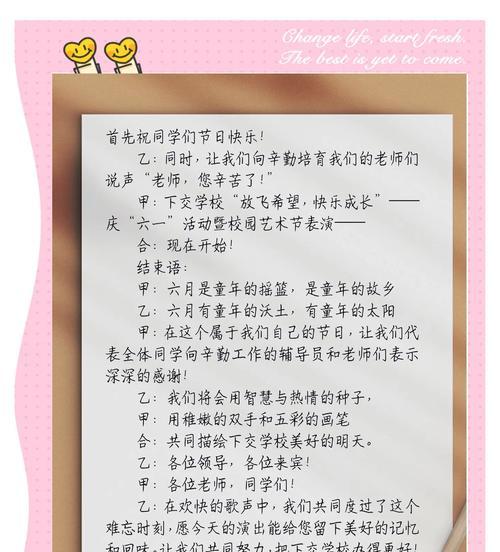 Change life, start fresh.
The best is yet to come.
首先祝同学们节日快乐!
乙:同时,让我们向辛勤培育我们的老师们
说声“老师,您辛苦了!”
甲:下交学校“放飞希望,快乐成长”——
庆“六一”活动暨校园艺术节表演——
合:现在开始!
结束语:
甲:六月是童年的摇篮,是童年的故乡
乙:六月有童年的沃土,有童年的太阳
甲:在这个属于我们自己的节日,让我们代
表全体同学向辛勤工作的辅导员和老师们表示
深深的感谢!
乙:我们将会用智慧与热情的种子,
甲:用稚嫩的双手和五彩的画笔
合:共同描绘下交学校美好的明天。
乙:各位领导,各位来宾!
甲:各位老师,同学们!
乙:在欢快的歌声中,我们共同度过了这个
难忘时刻,愿今天的演出能给您留下美好的记忆
和回味,让我们共同努力,把下交学校办得更好!